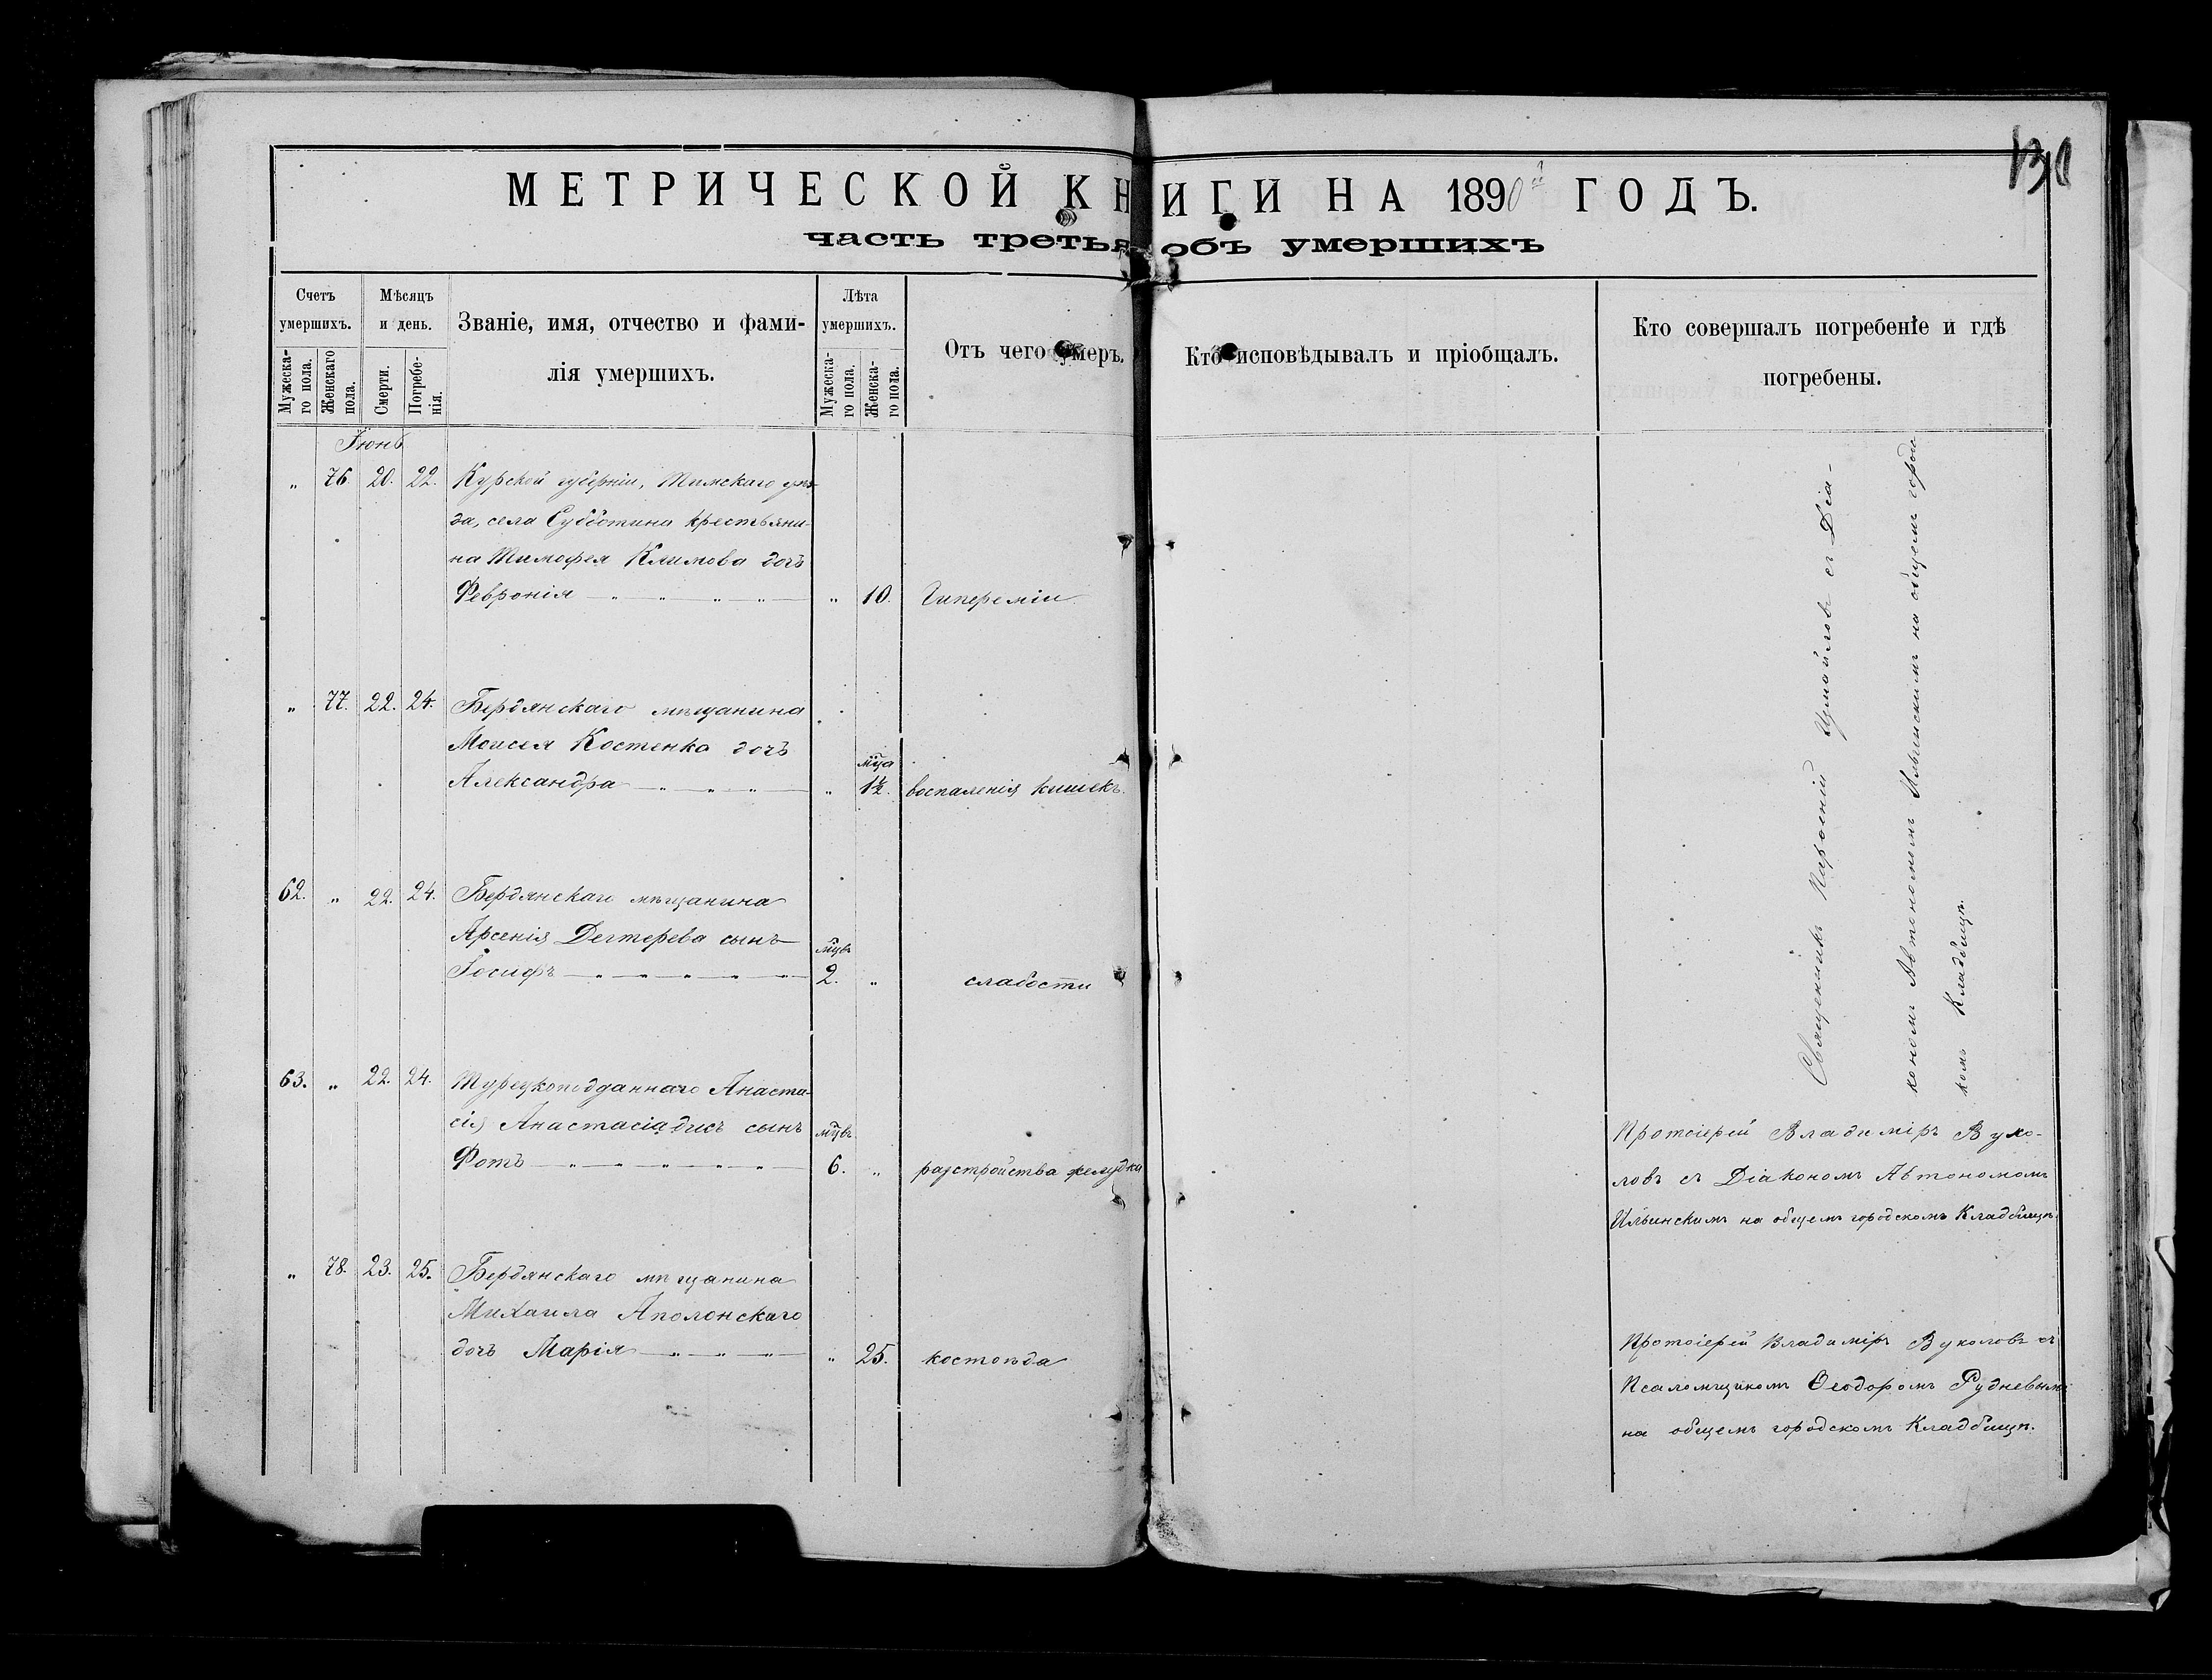 130
МЕТРИЧЕСКОЙ КНИГИ НА 1890й ГОДЪ.
часть третья объ умершихъ
Счетъ умершихъ.
Мужеска-
го пола.
Женскаго
пола.
Мѣсяцъ
и день.
Смерти.
Погребе-
нія.
Званіе, имя, отчество и фами-
лія умершихъ.
Лѣта
умершихъ.
Мужеска-
го пола.
Женска-
го пола.
Отъ чего умеръ.
Кто исповѣдывалъ и пріобщалъ.
Кто совершалъ погребеніе и гдѣ
погребены.
Іюнь
" 76. 20. 22. Курской губерніи, Тимскаго уѣз-
да, села Субботина крестьяни-
на Тимофея Климова дочь
Февронія " 10. Гипереміи
" 77. 22. 24. Бердянскаго мѣщанина
Моисея Костенка дочь
мца
Александра " 1½. воспаленія кишекъ.
62. " 22. 24. Бердянскаго мѣщанина
Арсенія Дегтерева сынъ
мцвъ
Іосифъ 2. " слабости
Священникъ Измайловъ съ Діа-
кономъ Автономомъ Ильинскимъ на общемъ городс-
комъ Кладбищѣ.
63. " 22. 24. Турецкоподданнаго Анаста-
сія Анастасіадисъ сынъ
мцвъ
Фотъ 6. " разстройства желудка
Протоіерей Владиміръ Вуко-
ловъ съ Діакономъ Автономомъ
Ильинскимъ на общемъ городскомъ Кладбищѣ.
" 78. 23. 25. Бердянскаго мѣщанина
Михаила Аполонскаго
дочь Марія " 25. костоѣда
Протоіерей Владиміръ Вуколовъ съ
Псаломщикомъ Ѳеодоромъ Рудневымъ
на общемъ городскомъ Кладбищѣ.